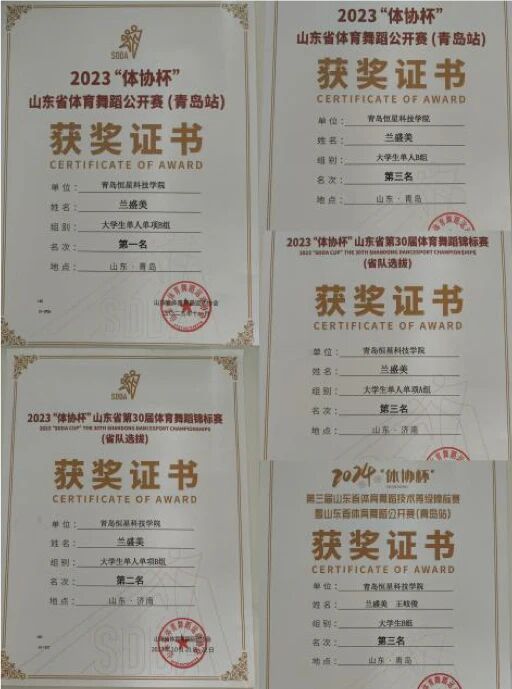 SDDA
2023“体协杯”
山东省体育舞蹈公开赛(青岛站)
获奖证书
CERTIFICATE OF AWARD
单位：青岛恒星科技学院
姓名：兰盛美
组别：大学生单人单项B组
名次：第一名
地点：山东·青岛
2023“体协杯”
山东省体育舞蹈公开赛(青岛站)
获奖证书
CERTIFICATE OF AWARD
单位：青岛恒星科技学院
姓名：兰盛美
组别：大学生单人B组
名次：第三名
地点：山东·青岛
2023“体协杯”山东省第30届体育舞蹈锦标赛
2023 "SDDA CUP" THE 30TH SHANDONG DANCESPORT CHAMPIONSHIPS
(省队选拔)
获奖证书
CERTIFICATE OF AWARD
单位：青岛恒星科技学院
姓名：兰盛美
组别：大学生单人单项A组
名次：第三名
地点：山东·济南
SDDA
2023“体协杯”山东省第30届体育舞蹈锦标赛
2023 "SDDA CUP" THE 30TH SHANDONG DANCESPORT CHAMPIONSHIPS
(省队选拔)
获奖证书
CERTIFICATE OF AWARD
单位：青岛恒星科技学院
姓名：兰盛美
组别：大学生单人单项B组
名次：第二名
地点：山东·济南
2024“体协杯”
第三届山东省体育舞蹈技术等级锦标赛
暨山东省体育舞蹈公开赛(青岛站)
获奖证书
CERTIFICATE OF AWARD
单位：青岛恒星科技学院
姓名：兰盛美
组别：大学生B组
名次：第三名
地点：山东·青岛